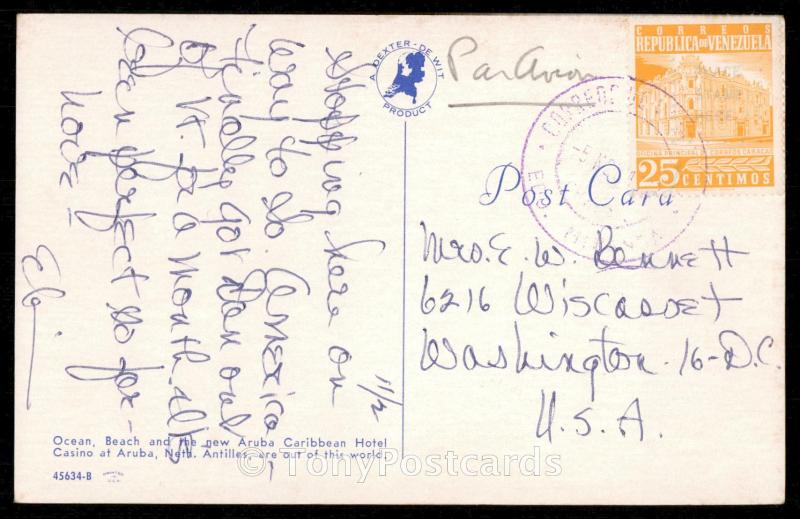 11/2
Stopping here on
way to So. America -
Finally got Dan out
of Vt. for a month. It's
been perfect so far -
Love -
A DEXTER-DE WIT PRODUCT
Par Avion
CORREOS
REPUBLICA DE VENEZUELA
OFICINA PRINCIPAL DE CORREOS CARACAS
25 CENTIMOS
CORREO
Post Card
Mrs. E. W. Bennett
6216 Wiscasset
Washington-16-D.C.
U.S.A.
Ocean, Beach and the new Aruba Caribbean Hotel
Casino at Aruba, Neth. Antilles, are out of this world.
45634-B
PRINTED IN U.S.A.
© TonyPostcards